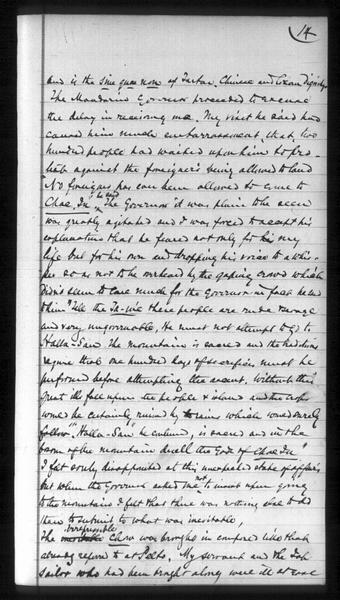 14
and is the sine qua non of Tartar, Chinese and Corean Dignity.
The Mandarin Governor proceeded to excuse
the delay in receiving me. My visit he said had
caused him much embarrassment, that, two
hundred people had waited upon him to pro-
test against the foreigner's being allowed to land
"No foreigner has ever been allowed to come to
Chae Ju" he said The Governor it was plain to be seen
was greatly agitated and I was forced to accept his
explanation that he feared not only for my
life but for his own and dropping his voice to a whis-
per so as not to be overheard by the gaping crowd which
didn't seem to care much for the Governor in fact he said
them "Tell the Ta-jin these people are rude savage
and very ungovernable. He must not attempt to go to
Halla-San. The mountain is sacred and the traditions
require that one hundred days of sacrifice must be
performed before attempting the ascent. Without this
great ills fall upon the people & island and the crops
would be certainly ruined by rains which would surely
follow" "Halla-San" he continued, is sacred and in the
bosom of the mountain dwell the Gods of Chae Ju"
I felt sorely disappointed at this unexpected state of affairs
but when the Governor asked me not to insist upon going
to the mountains I felt that there was nothing else to do
than to submit to what was inevitable,
The irrepressible Chow was brought in confused like that
already referred to at Seoul. My servant and the
sailor who had been brought along were ill at ease